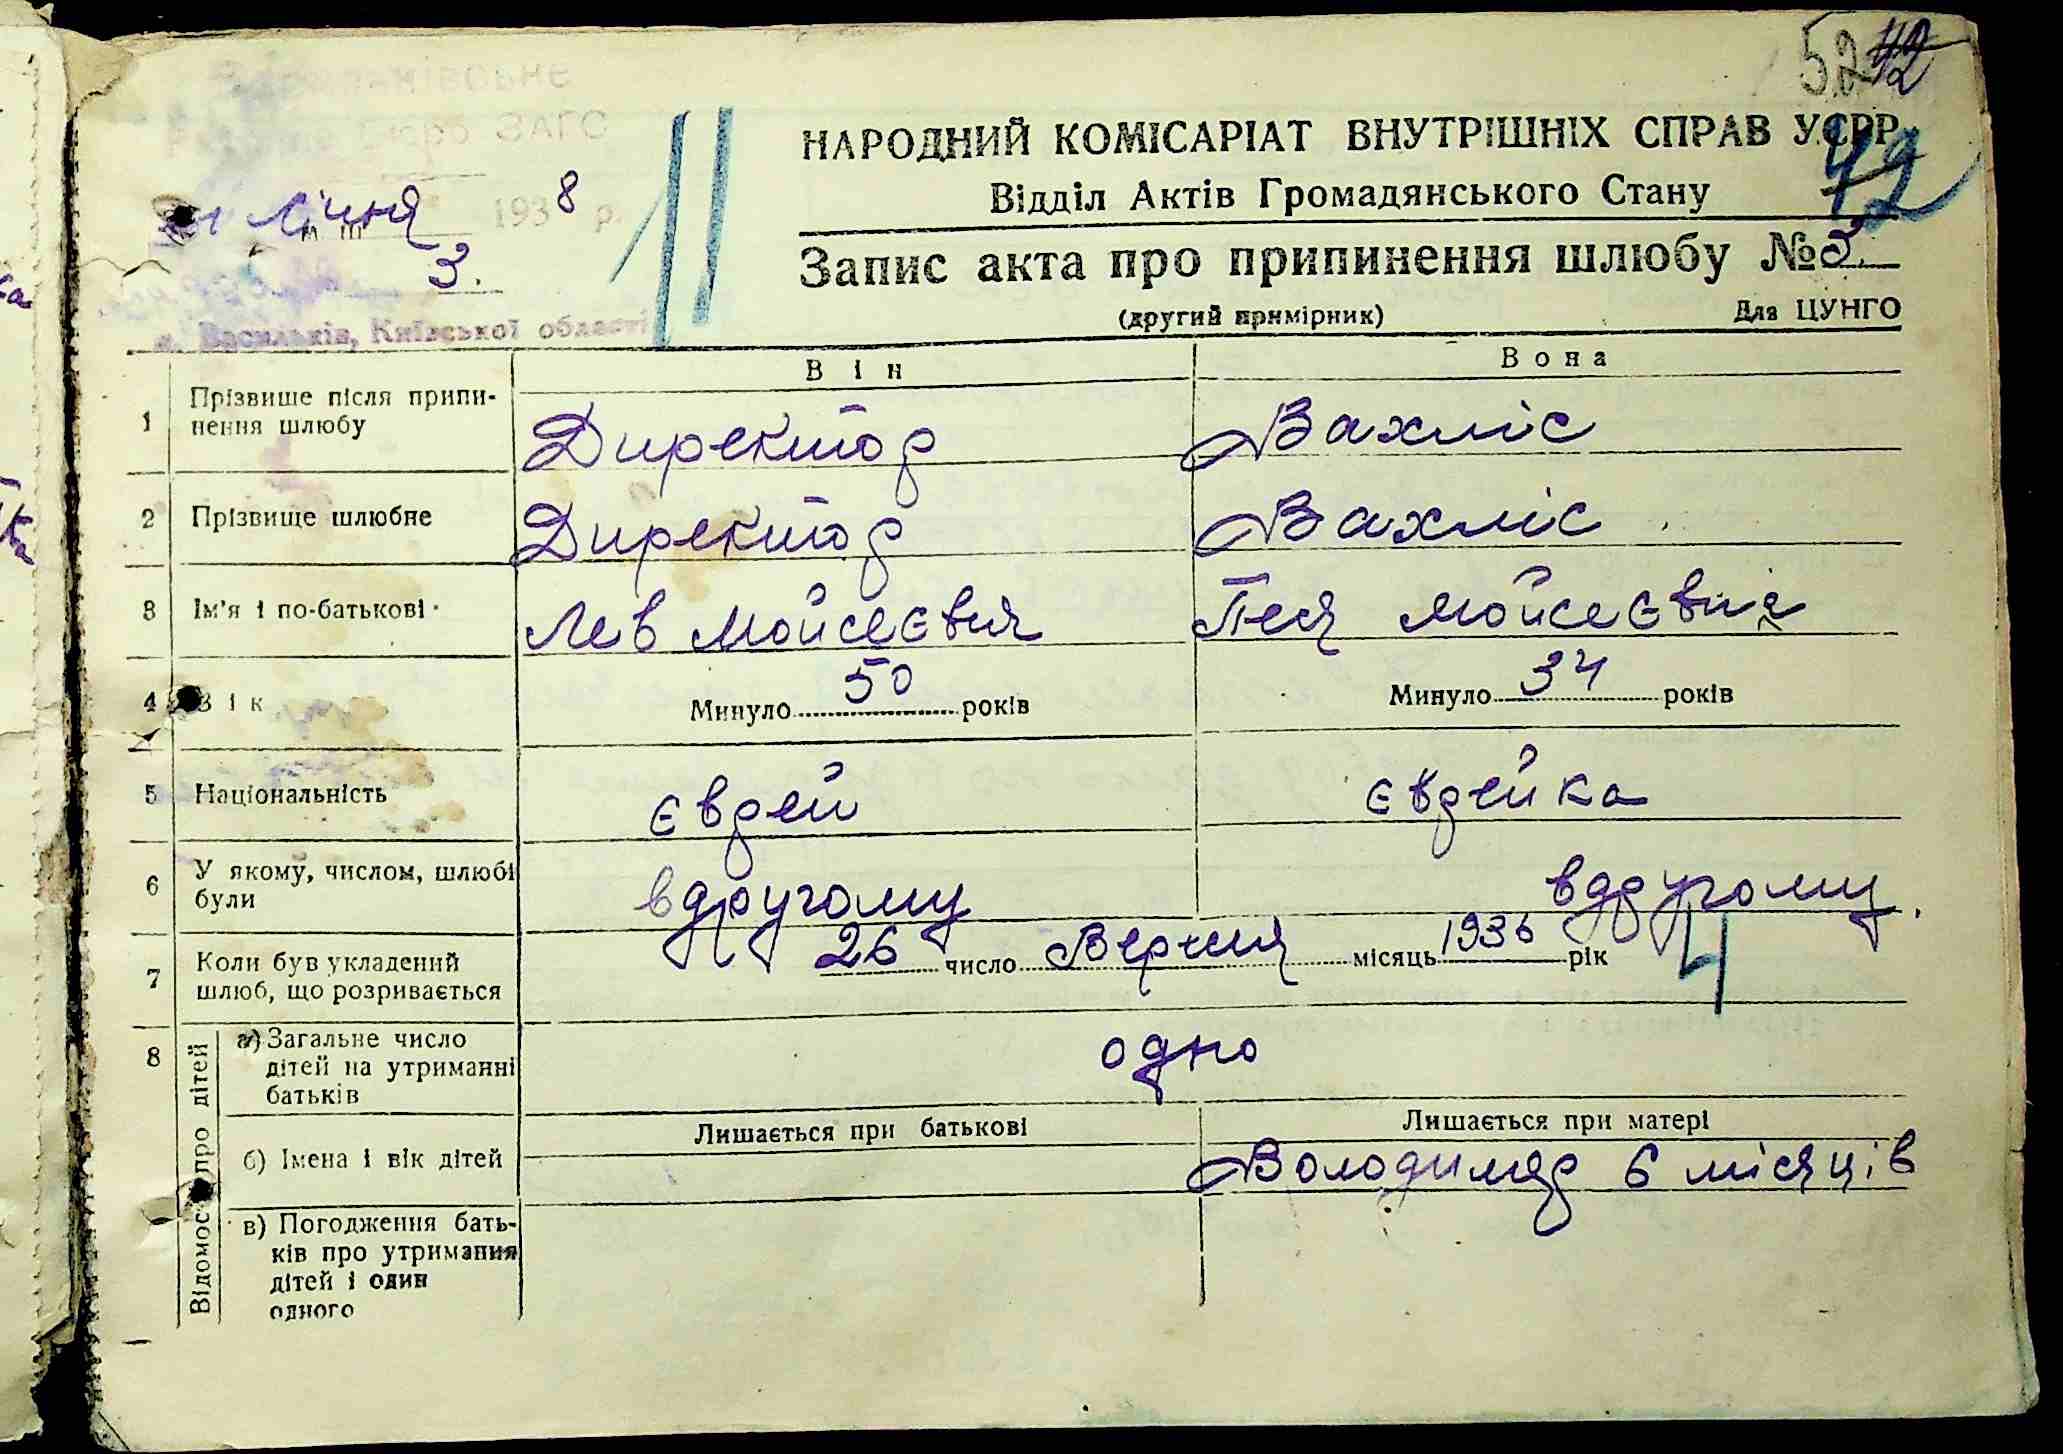 52 42
Васильківське
Районне Бюро ЗАГС
НАРОДНИЙ КОМІСАРІАТ ВНУТРІШНІХ СПРАВ УСРР
42
Відділ Актів Громадянського Стану
січня 1938 р.
11
Запис акта про припинення шлюбу № 3.
3.
(другий примірник) Для ЦУНГО
м. Васильків, Київської області
Він Вона
1 Прізвище після припи-
нення шлюбу
Директор Вахліс
2 Прізвище шлюбне Директор Вахліс
3 Ім'я і по-батькові Лев Мойсеєвич Песя Мойсеєвна
4 Вік Минуло 50 років Минуло 34 років
5 Національність єврей єврейка
6 У якому, числом, шлюбі
були
вдругому вдругому
7 Коли був укладений
шлюб, що розривається
26 число Вересня місяць 1936 рік
4
8 Відомості про дітей
а) Загальне число
дітей на утриманні
батьків
одно
Лишається при батькові Лишається при матері
б) Імена і вік дітей Володимир 6 місяців
в) Погодження бать-
ків про утримання
дітей і один
одного